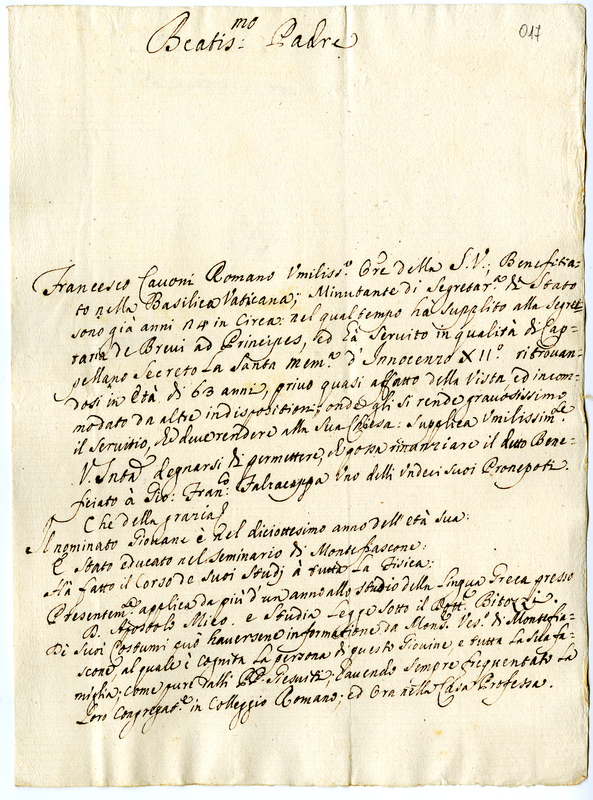 017
Beatis:mo Padre
Francesco Cavoni Romano Vmiliss.o Ore della S.V., Benefitia=
to nella Basilica Vaticana; Minutante di Segretar.a di Stato
sono già anni 24 in Circa: nel qual tempo ha supplito alla Segret
raria de Brevi ad Principes, ed hà Servito in qualità di Cap=
pellano Secreto La Santa Mem.a d'Innocenzo XII.o ritrovan=
dosi in Età di 63 anni, privo quasi affatto della Vista ed incom=
modato da altre indispositioni, onde gli si rende gravosissimo
il Servitio, che deve rendere alla Sua Chiesa: Supplica Vmilissim.te
V. Sntà degnarsi di permettere, che possa rinunziare il detto Bene=
ficiato à Gio: Fran.co Falzacappa Uno delli Undeci Suoi Pronepoti.
Che della grazia
Il nominato Giovane è nel diciottesimo anno dell'età sua:
È stato educato nel Seminario di Montefiascone:
Hà fatto il Corso de Suoi Studj à tutta La Fisica:
Presentem.te applica da più d'un anno allo studio della Lingua Greca presso
D. Apostolo Mico. e Studia Legge Sotto il Dott. Bitozzi.
Di Suoi Costumi può haversene informatione da Mons. Ves.o di Montefia=
scone, al quale è cognita La persona di questo Giovine, e tutta La Sua fa=
miglia; come pure dalli PP. Giesuiti; havendo Sempre frequentato La
Loro Congregat.e in Colleggio Romano; ed Ora nella Casa Professa.